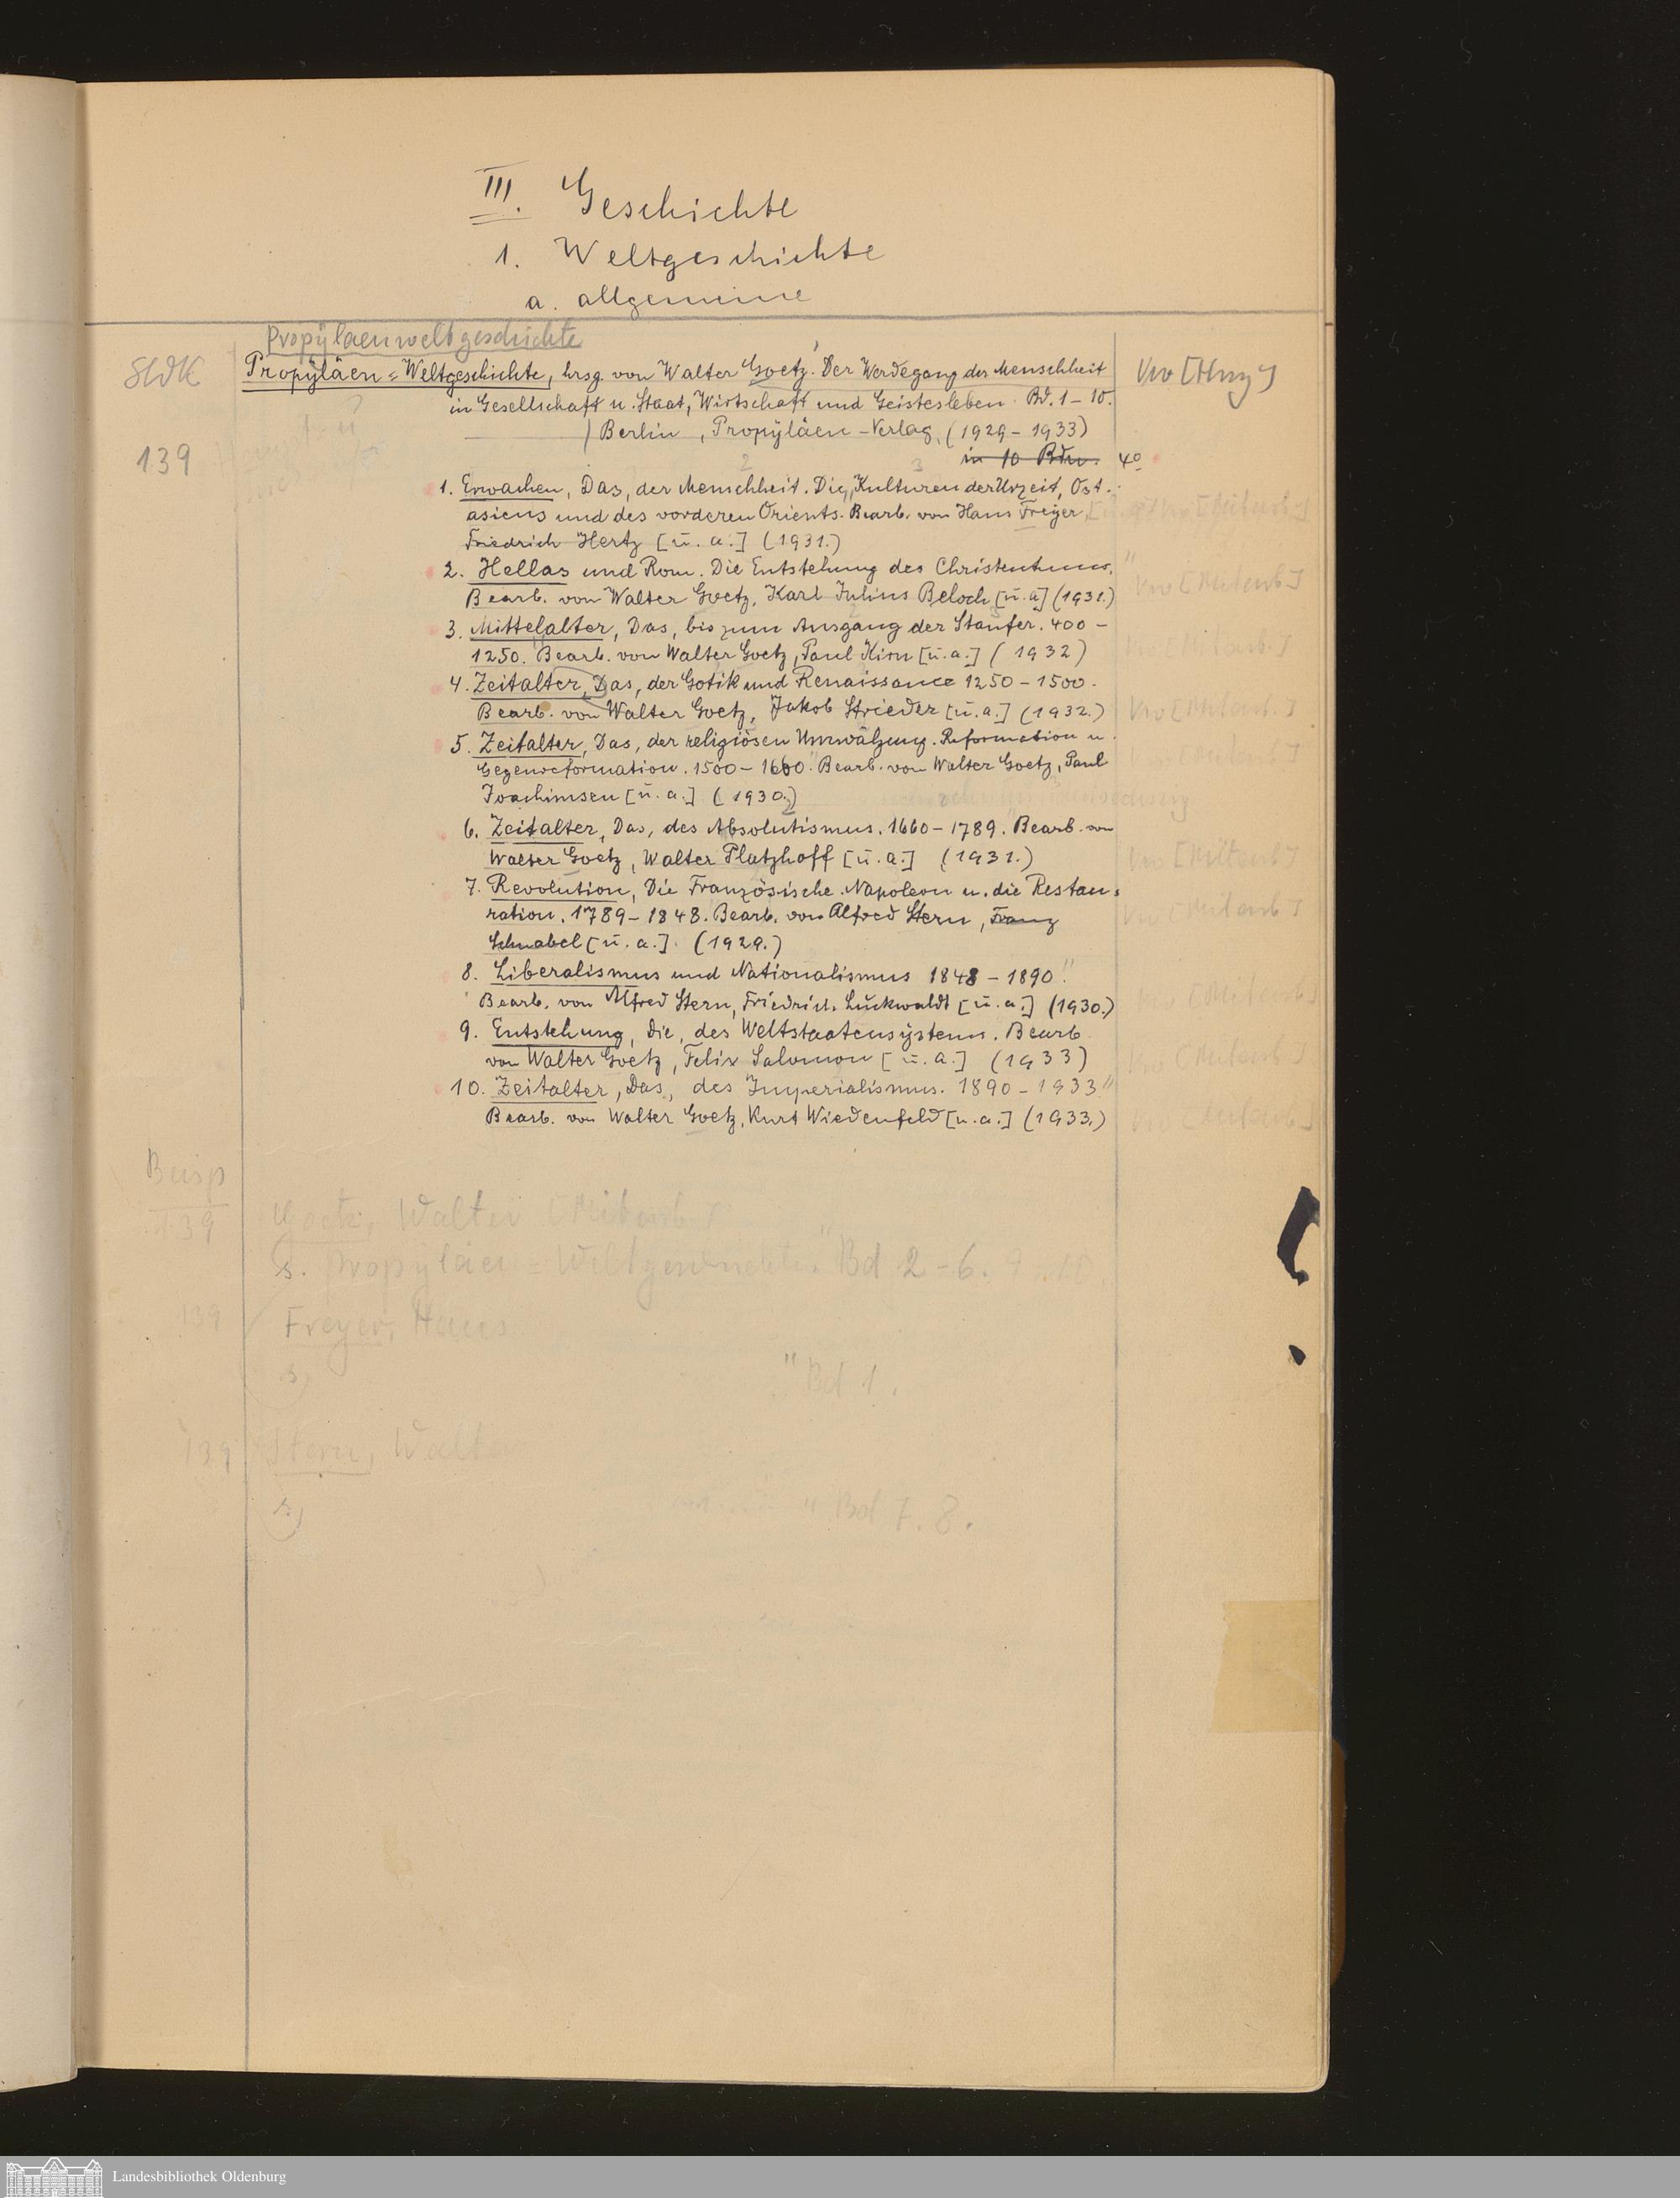 III. Geschichte
1. Weltgeschichte
a. allgemeine
Propÿlaenweltgeschichte
Propÿläen=Weltgeschichte, hrsg. von Walter Goetz. Der Werdegang der Menschheit
in Gesellschaft u. Staat, Wirtschaft und Geistesleben. Bd. 1-10.
139
Berlin, Propÿläen-Verlag, (1929-1933)
in 10 Bdn. 4°
1. Erwachen, Das, der Menschheit. Die Kulturen der Urzeit, Ost-
asiens und des vorderen Orients. Bearb. von Hans Freÿer,
Friedrich Hertz [u. a.] (1931.)
2. Hellas und Rom. Die Entstehung des Christentums."
Bearb. von Walter Goetz, Karl Julius Beloch [u. a] (1931.)
3. Mittelalter, Das, bis zum Ausgang der Staufer. 400-
1250. Bearb. von Walter Goetz, Paul Kirn [u. a.] (1932)
4. Zeitalter, Das, der Gotik und Renaissance 1250-1500.
Bearb. von Walter Goetz, Jakob Strieder [u. a.] (1932.)
5. Zeitalter, Das, der religiösen Umwälzung. Reformation u.
Gegenreformation. 1500-1660." Bearb. von Walter Goetz, Paul
Joachimsen [u. a.] (1930.)
6. Zeitalter, Das, des Absolutismus. 1660-1789. Bearb. von
Walter Goetz, Walter Platzhoff [u. a.] (1931.)
7. Revolution, Die Französische. Napoleon u. die Restau=
ration. 1789-1848. Bearb. von Alfred Stern, Franz
Schnabel [u. a.]. (1929.)
8. Liberalismus und Nationalismus 1848-1890."
Bearb. von Alfred Stern, Friedrich Luckwaldt [u. a.] (1930.)
9. Entstehung, Die, des Weltstaatensÿstems. Bearb
von Walter Goetz, Felix Salomon [u. a.] (1933)
10. Zeitalter, Das, des Imperialismus. 1890-1933"
Bearb. von Walter Goetz, Kurt Wiedenfeld [u. a.] (1933.)
139
Goetz, Walter [Mitarb.]
s. Propyläen=Weltgeschichte" Bd 2-6. 9. 10.
139
Freyer, Hans
s.
" Bd 1.
139
Stern, Walter
s.
" Bd 7. 8.
Landesbibliothek Oldenburg